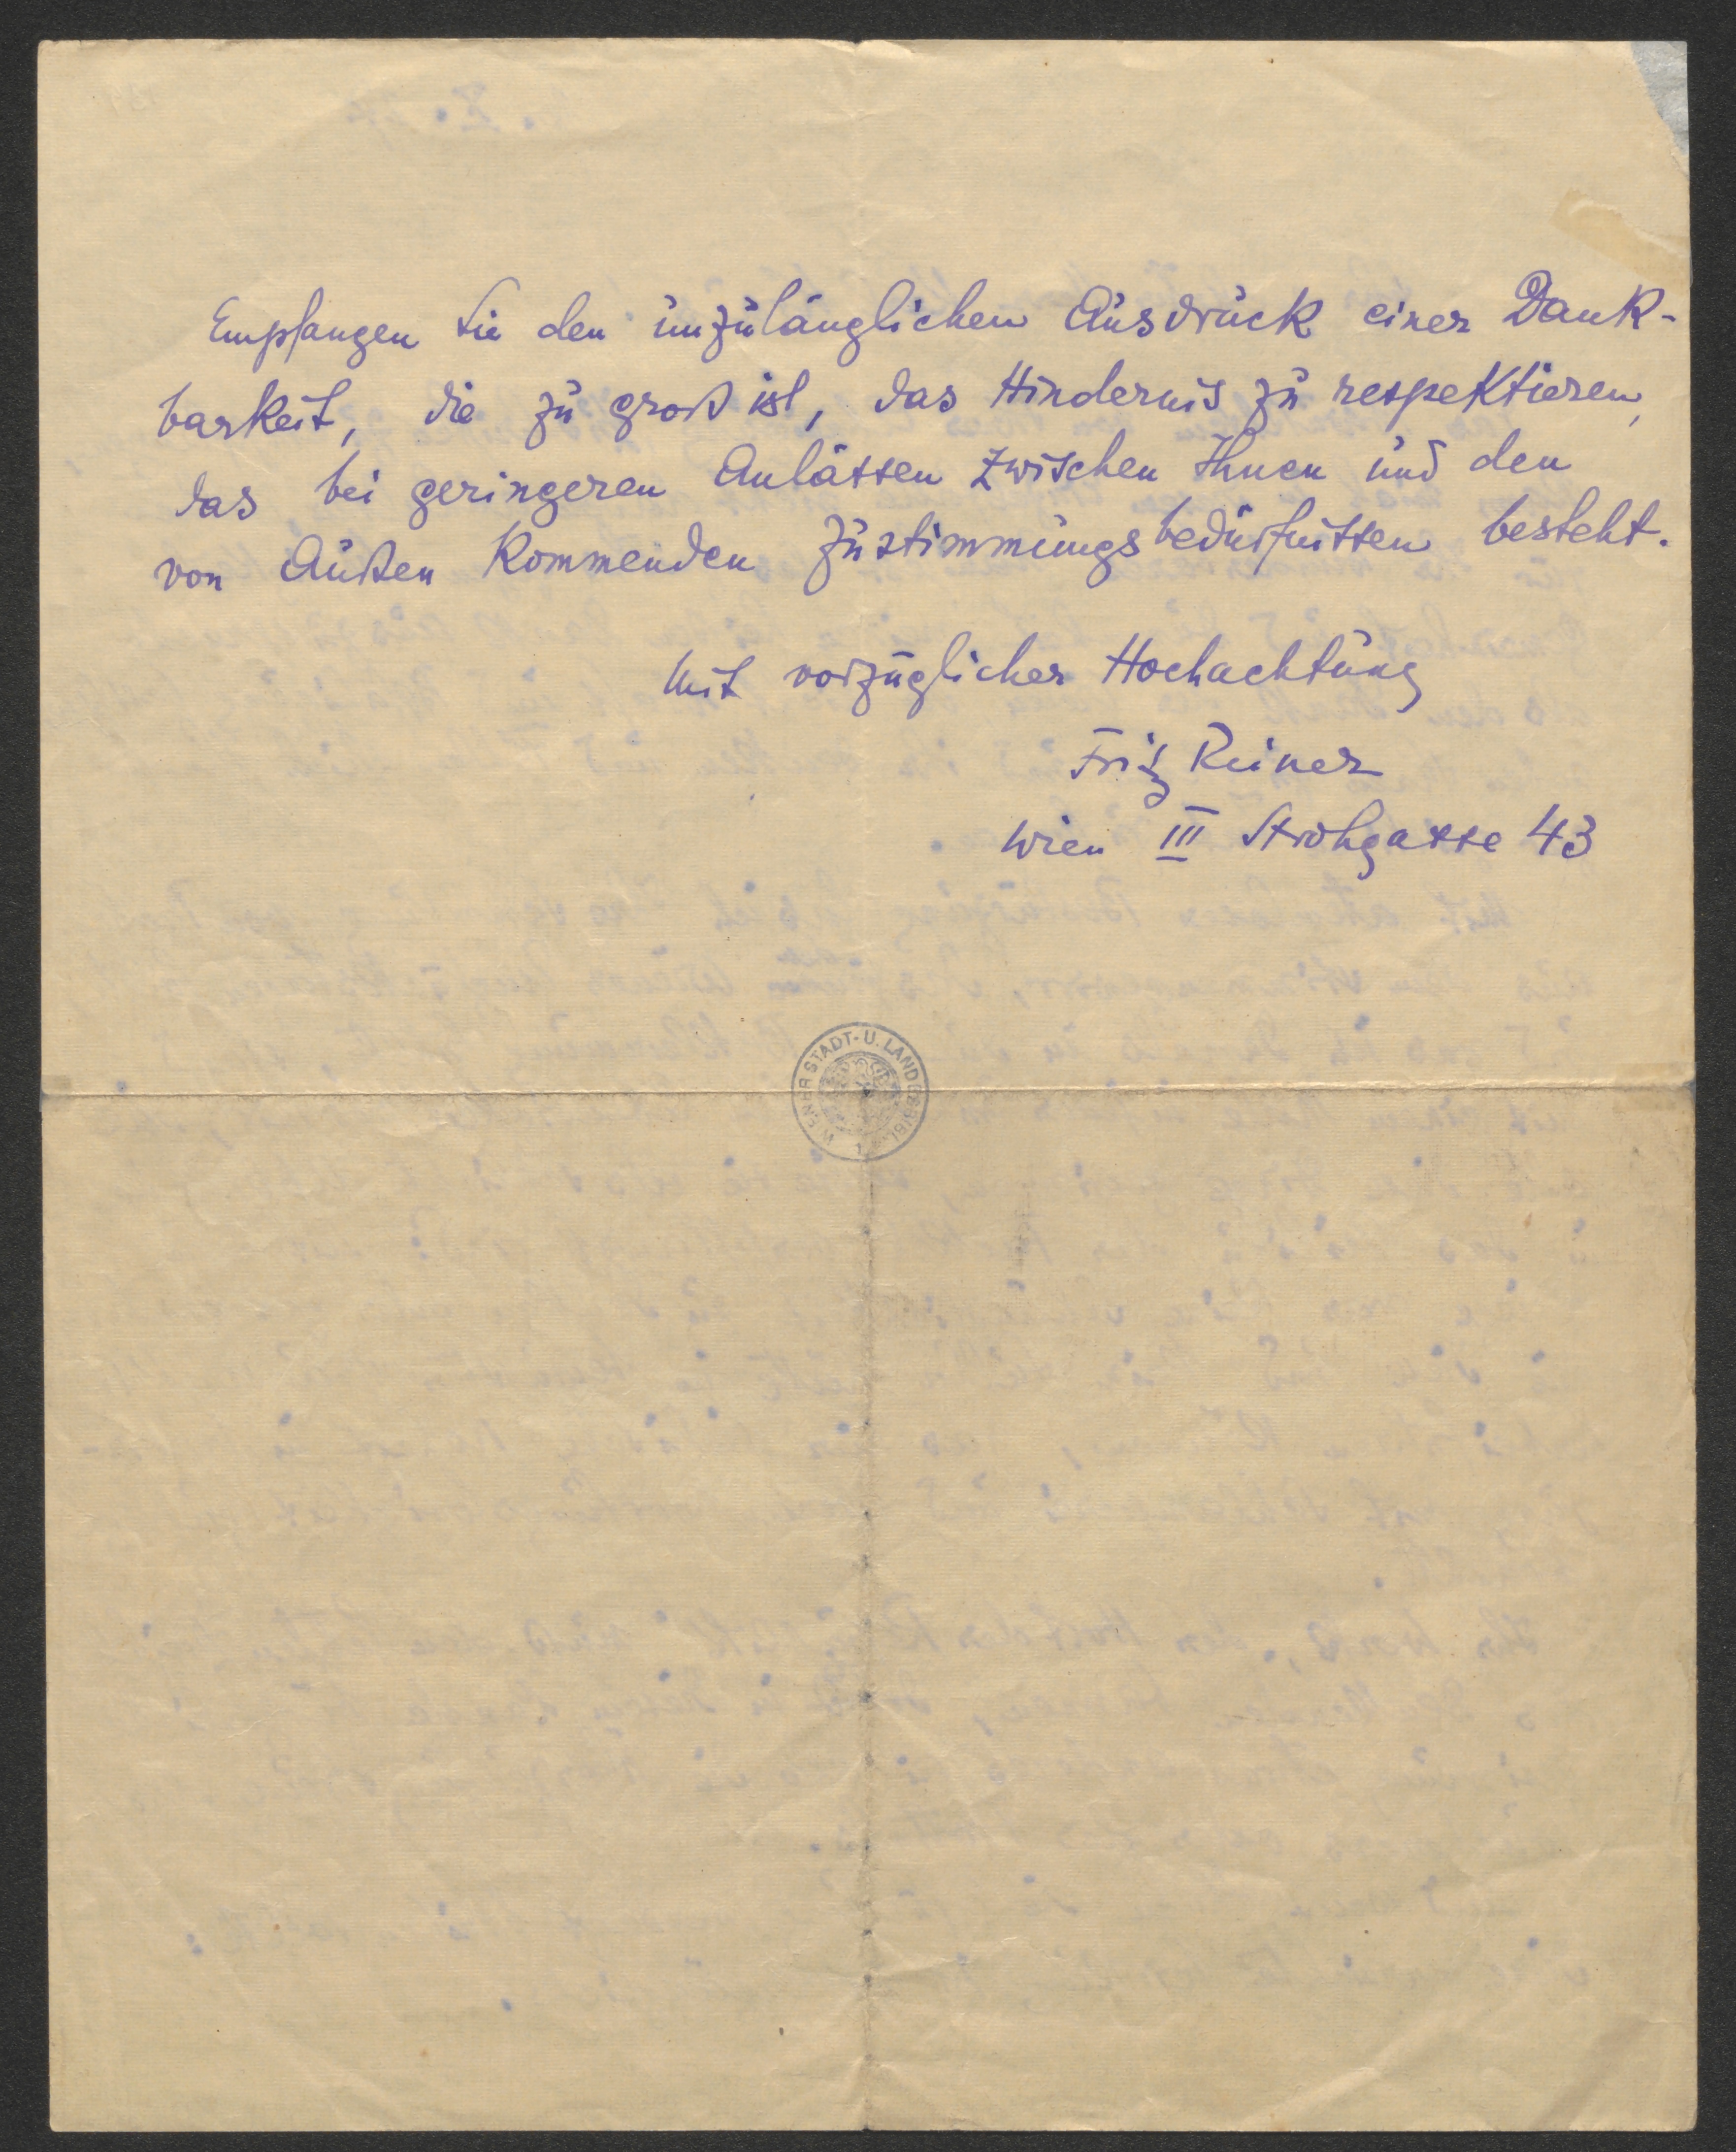 Empfangen Sie den unzulänglichen Ausdruck einer Dank-
barkeit, die zu groß ist, das Hindernis zu respektieren,
das bei geringeren Anlässen zwischen Ihnen und den
von Außen kommenden Zustimmungsbedürfnissen besteht.
Mit vorzüglicher Hochachtung
Fritz Reiner
Wien III Strohgasse 43
WIENER STADT- U. LANDESBIBL.